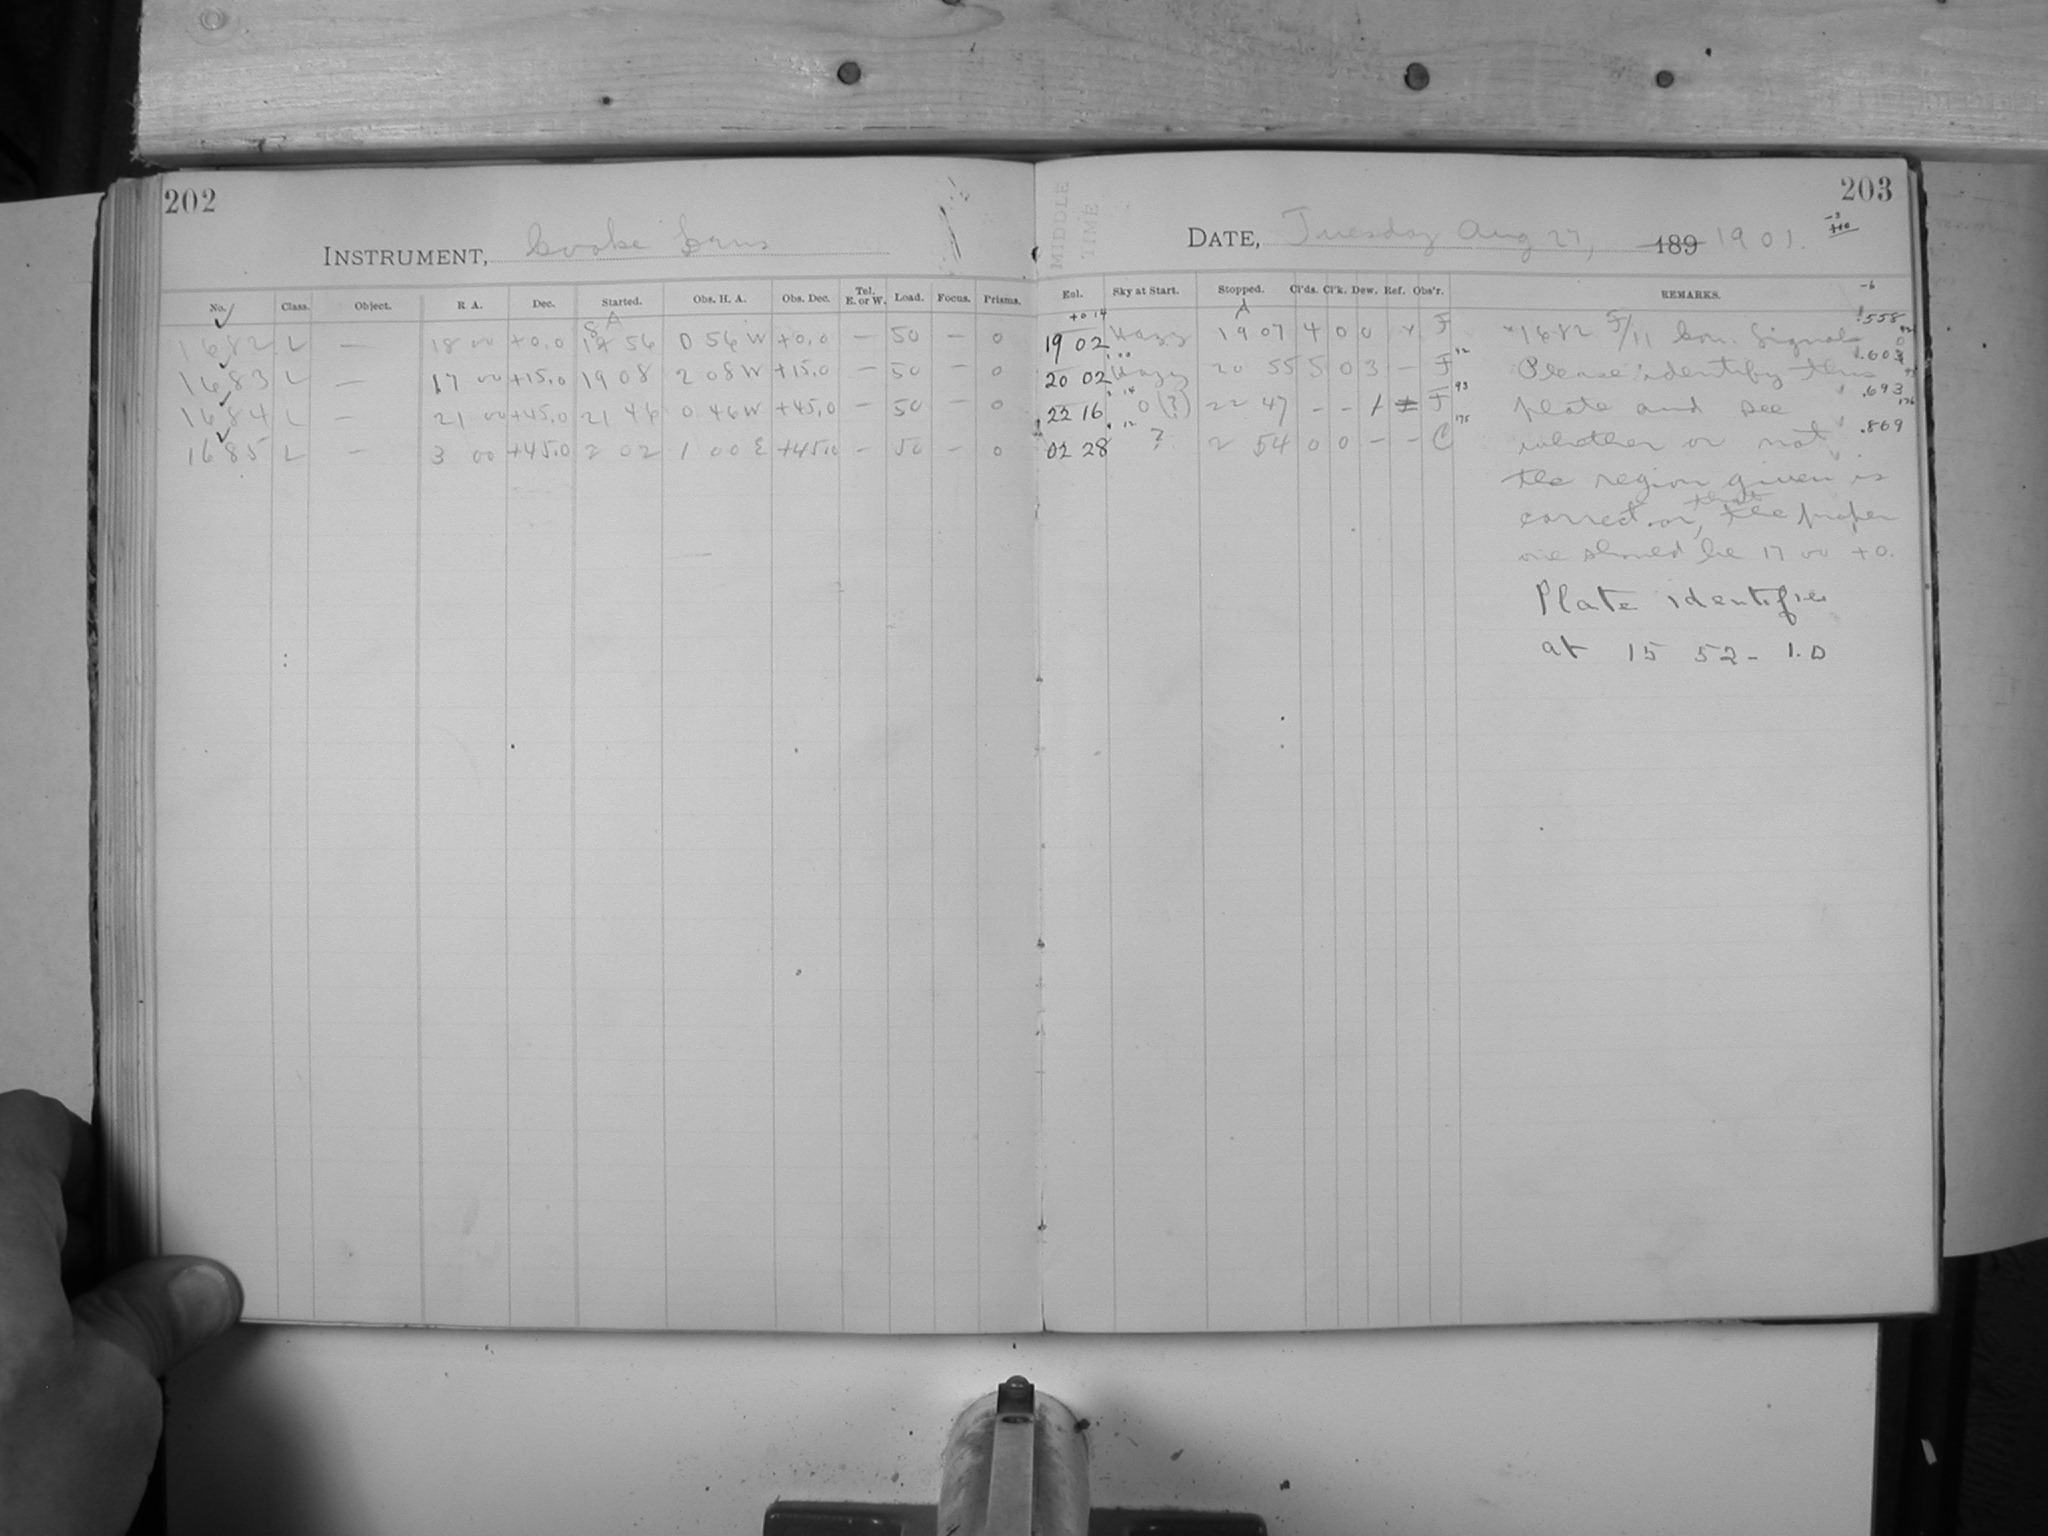 202
INSTRUMENT, Cooke Lens
No. Class. Object. R. A. Dec. Started. Obs. H. A. Obs. Dec. Tel. E. or W. Load. Focus. Prisms.
1682 L — 18 00 +0,0 18 56 0 56 W +0,0 — 50 — 0
1683 L — 17 00 +15,0 19 08 2 08 W +15,0 — 50 — 0
1684 L — 21 00 +45,0 21 46 0 46 W +45,0 — 50 — 0
1685 L — 3 00 +45,0 2 02 1 00 E +45,0 — 50 — 0
203
MIDDLE TIME
DATE, Tuesday Aug 27, 189 1901.
Enl. Sky at Start. Stopped. Cl'ds. Cl'k. Dew. Ref. Obs'r. REMARKS.
19 02 Hazy 19 07 4 0 0 F
20 02 Hazy 20 55 5 0 3 — F
22 16 0 (?) 22 47 — — F
02 28 ? 2 54 0 0 — — C
.558
.603
.693
.869
1682 F/11 Con. Signals
Please identify this
plate and see
whether or not
the region given is
correct or, that the proper
one should be 17 00 +0.
Plate identifies
at 15 52 - 1.0